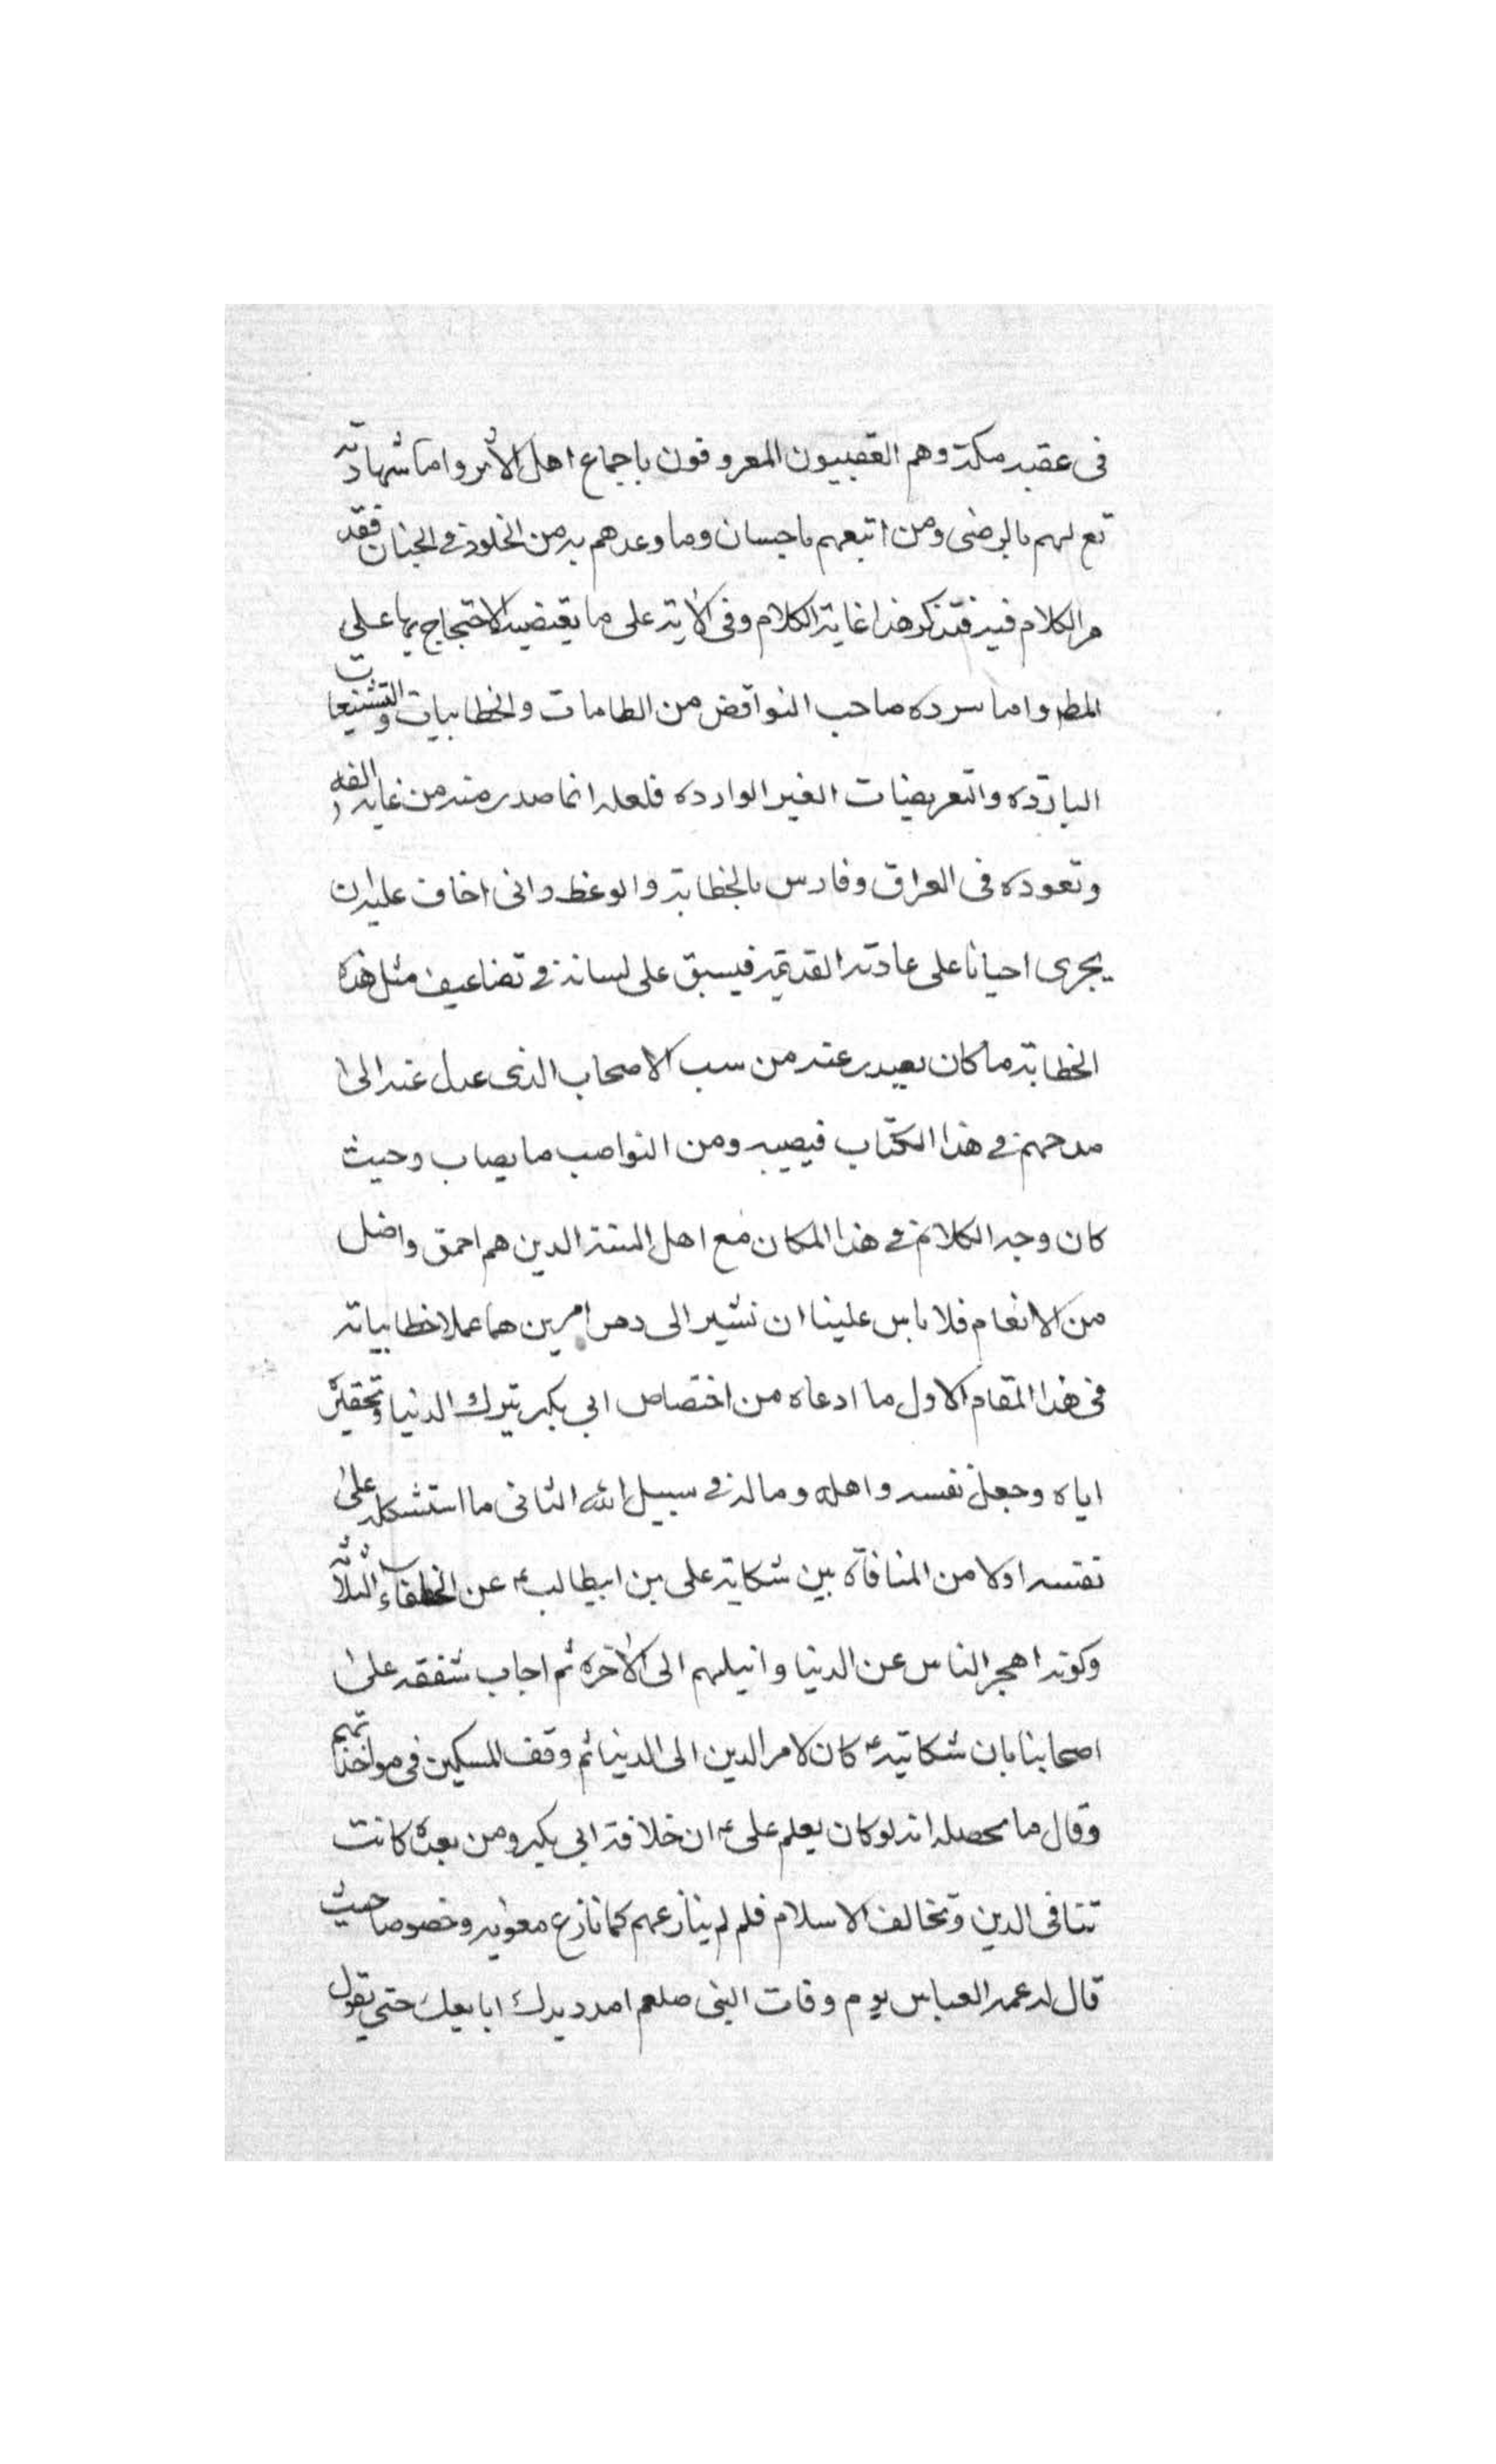 فى عقبه مكة وهم العقبيون المعروفون باجماع اهل الأثر واما شهادته
تع لهم بالرضى ومن اتبعهم باحسان وما وعدهم به من الخلود فى الجنان فقد
مر الكلام فيه فتذكر هذا غاية الكلام وفى الآية على ما يقتضيه الاحتجاج بها على
المط واما سرده صاحب النواقض من الطامات والخطابيات والتشنيعات
الباردة والتعريضات الغير الوارده فلعله انما صدر منه من غاية
وتعوده فى العراق وفارس بالخطابة والوعظ وانى اخاف عليه ان
يجرى احيانا على عادته القديمة فيسبق على لسانه فى تضاعيف مثل هذه
الخطابة ما كان يصدر عنه من سب الاصحاب الذى عدل عنه الى
مدحهم فى هذا الكتاب فيصيبه ومن النواصب ما يصاب وحيث
كان وجه الكلام فى هذا المكان مع اهل السنة الدين هم احمق واضل
من الانعام فلا باس علينا ان نشير الى امرين هما عملا خطابياته
فى هذا المقام الاول ما ادعاه من اختصاص ابى بكر بترك الدنيا وتحقيره
اياه وجعل نفسه واهله وماله فى سبيل الله الثانى ما استشكله على
نفسه اولا من المنافاة بين شكاية على بن ابيطالب ع عن الخلفاء الثلاثة
وكونه اهجر الناس عن الدنيا وانيلهم الى الآخره ثم اجاب شفقه على
اصحابنا بان شكايته ع كان لامر الدين الى الدنيا ثم وقف المسكين فى مواخذتهم
وقال ما محصله انه لو كان يعلم على ع ان خلافة ابى بكر ومن بعده كانت
تنافى الدين وتخالف الاسلام فلم لم ينازعهم كما نازع معوية وخصوصا حيث
قال له عمه العباس يوم وفات النبى صلعم امدد يدك ابايعك حتى يقول